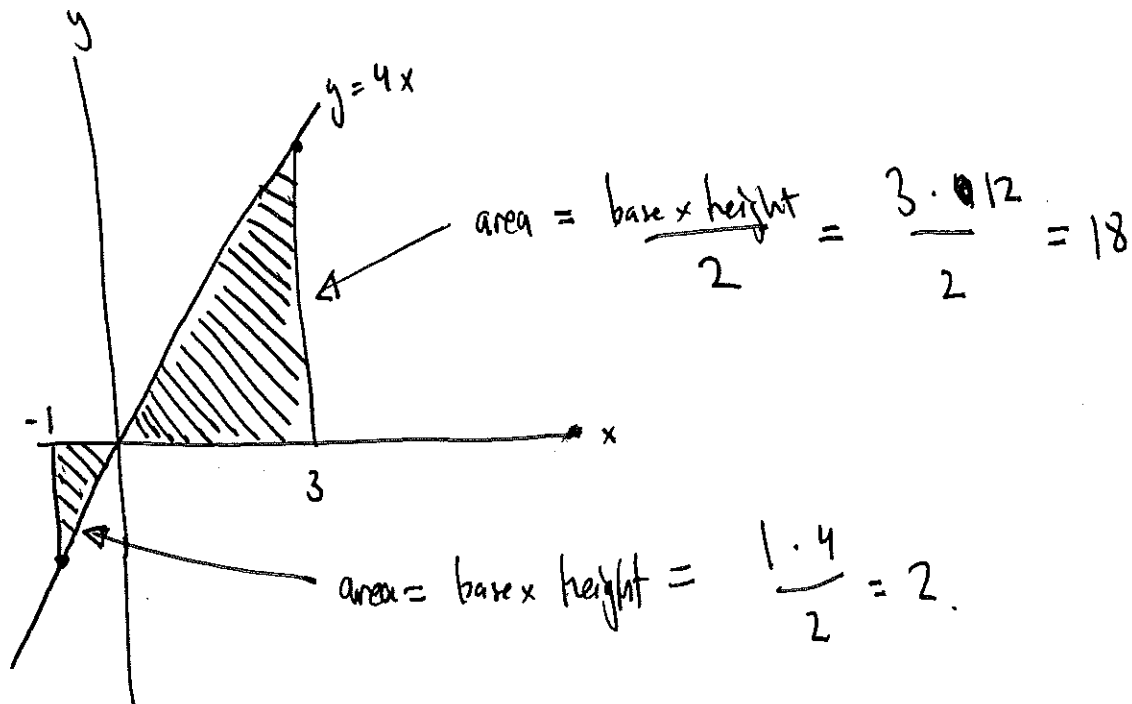 y
y = 4x
area = base x height / 2 = 3 · 12 / 2 = 18
-1
x
3
area = base x height = 1 · 4 / 2 = 2.